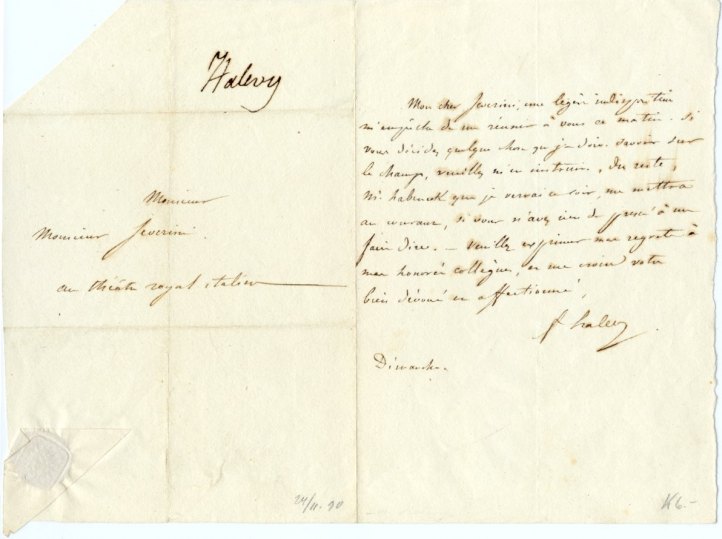 Halevy
Monsieur
Monsieur Severini
au théâtre royal italien
Mon cher Severini, une légère indisposition
m'empêche de me réunir à vous ce matin. Si
vous décidez quelque chose que je doive savoir sur
le champ, veuillez m'en instruire. Du reste,
M. habeneck que je verrai ce soir, me mettra
au courant, si vous n'avez rien de pressé à me
faire dire. — Veuillez exprimer mes regrets à
mes honorés collègues, et me croire votre
bien dévoué et affectionné,
f halevy
Dimanche.
24/11. 90